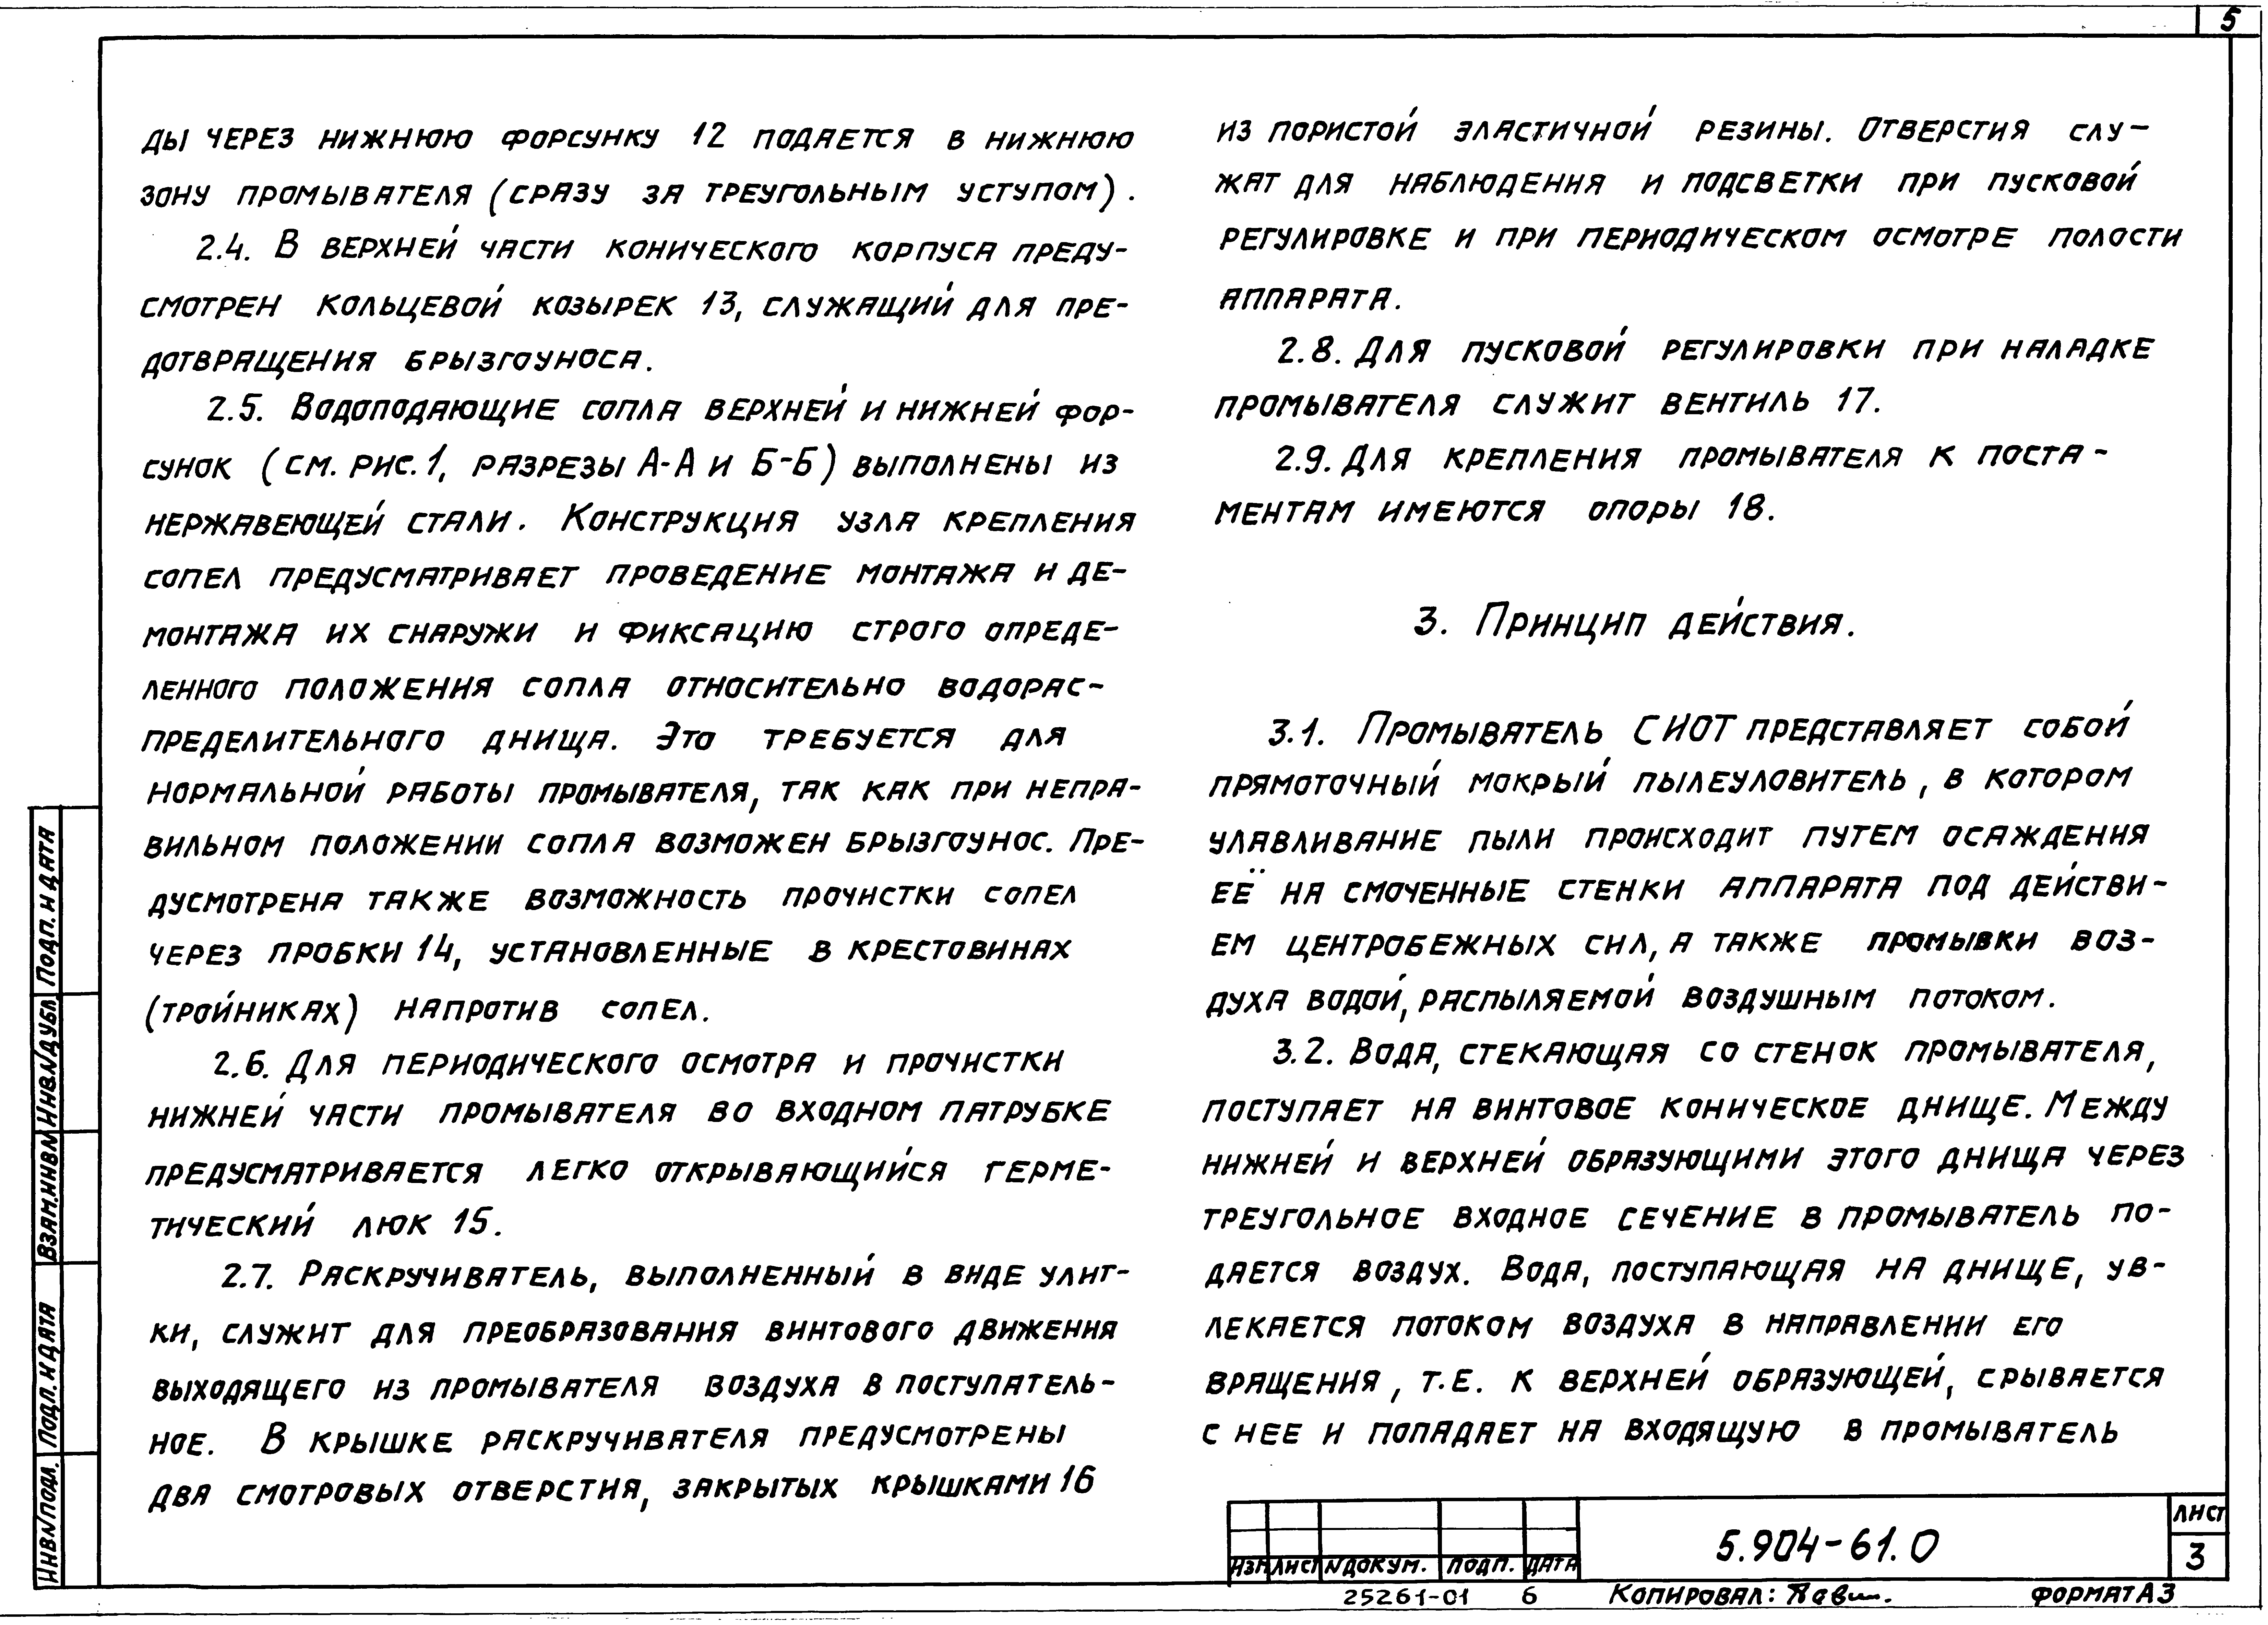 5
ды через нижнюю форсунку 12 подается в нижнюю
зону промывателя (сразу за треугольным уступом).
2.4. В верхней части конического корпуса преду-
смотрен кольцевой козырек 13, служащий для пре-
дотвращения брызгоуноса.
2.5. Водоподающие сопла верхней и нижней фор-
сунок (см. рис. 1, разрезы А-А и Б-Б) выполнены из
нержавеющей стали. Конструкция узла крепления
сопел предусматривает проведение монтажа и де-
монтажа их снаружи и фиксацию строго опреде-
ленного положения сопла относительно водорас-
пределительного днища. Это требуется для
нормальной работы промывателя, так как при непра-
вильном положении сопла возможен брызгоунос. Пре-
дусмотрена также возможность прочистки сопел
через пробки 14, установленные в крестовинах
(тройниках) напротив сопел.
2.6. Для периодического осмотра и прочистки
нижней части промывателя во входном патрубке
предусматривается легко открывающийся герме-
тический люк 15.
2.7. Раскручиватель, выполненный в виде улит-
ки, служит для преобразования винтового движения
выходящего из промывателя воздуха в поступатель-
ное. В крышке раскручивателя предусмотрены
два смотровых отверстия, закрытых крышками 16
из пористой эластичной резины. Отверстия слу-
жат для наблюдения и подсветки при пусковой
регулировке и при периодическом осмотре полости
аппарата.
2.8. Для пусковой регулировки при наладке
промывателя служит вентиль 17.
2.9. Для крепления промывателя к поста-
ментам имеются опоры 18.
3. Принцип действия.
3.1. Промыватель СИОТ представляет собой
прямоточный мокрый пылеуловитель, в котором
улавливание пыли происходит путем осаждения
её на смоченные стенки аппарата под действи-
ем центробежных сил, а также промывки воз-
духа водой, распыляемой воздушным потоком.
3.2. Вода, стекающая со стенок промывателя,
поступает на винтовое коническое днище. Между
нижней и верхней образующими этого днища через
треугольное входное сечение в промыватель по-
дается воздух. Вода, поступающая на днище, ув-
лекается потоком воздуха в направлении его
вращения, т.е. к верхней образующей, срывается
с нее и попадает на входящую в промыватель
Инв N подл. Подп. и дата Взам. инв N Инв N дубл. Подп. и дата
Изм Лист N докум. Подп. Дата
5.904-61.0
Лист
3
25261-01 6 Копировал: Формат А3